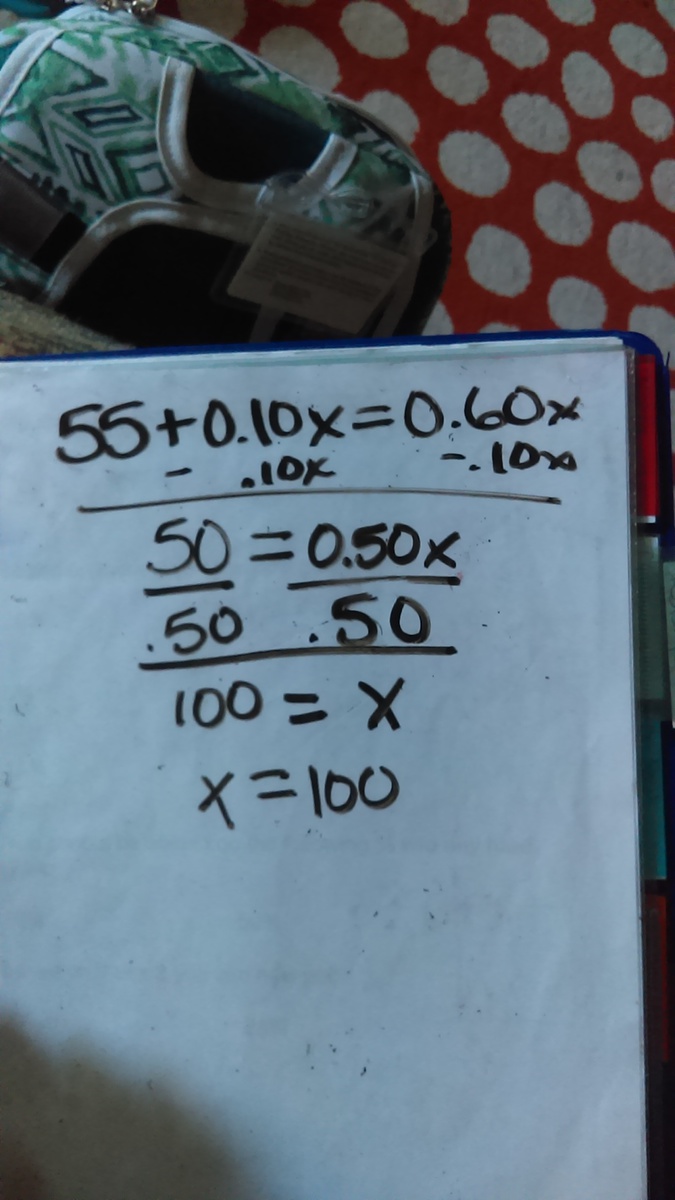 55+0.10x=0.60x
- .10x -.10x
50 = 0.50x
.50 .50
100 = x
x=100